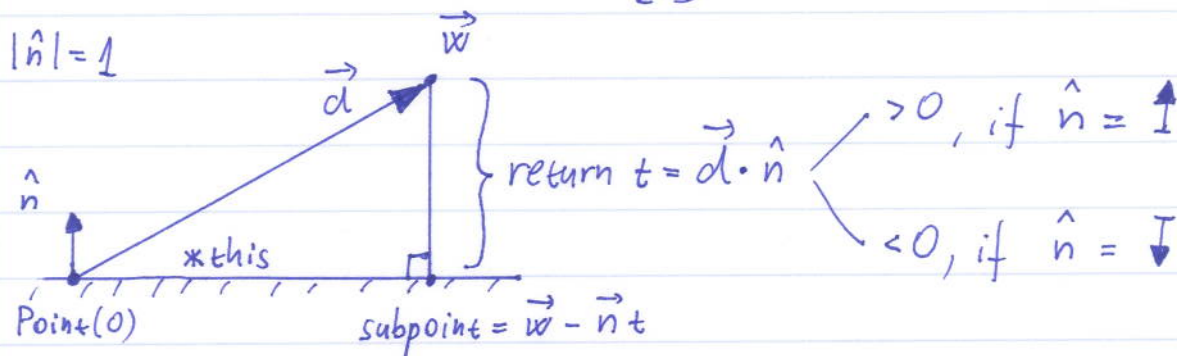 |n̂| = 1
w⃗
d⃗
> 0, if n̂ = ↑
return t = d⃗ · n̂
n̂
< 0, if n̂ = ↓
*this
Point(0)
subpoint = w⃗ - n⃗ t